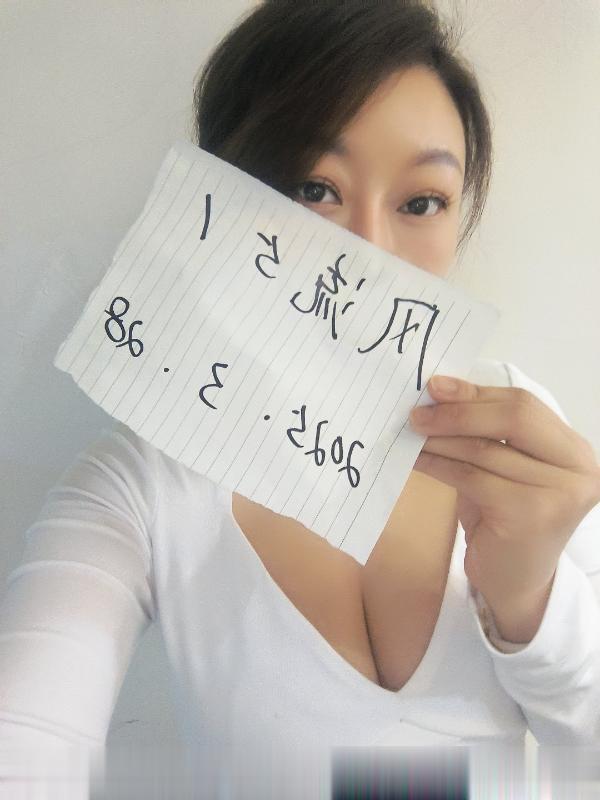 风流51
2025.3.28